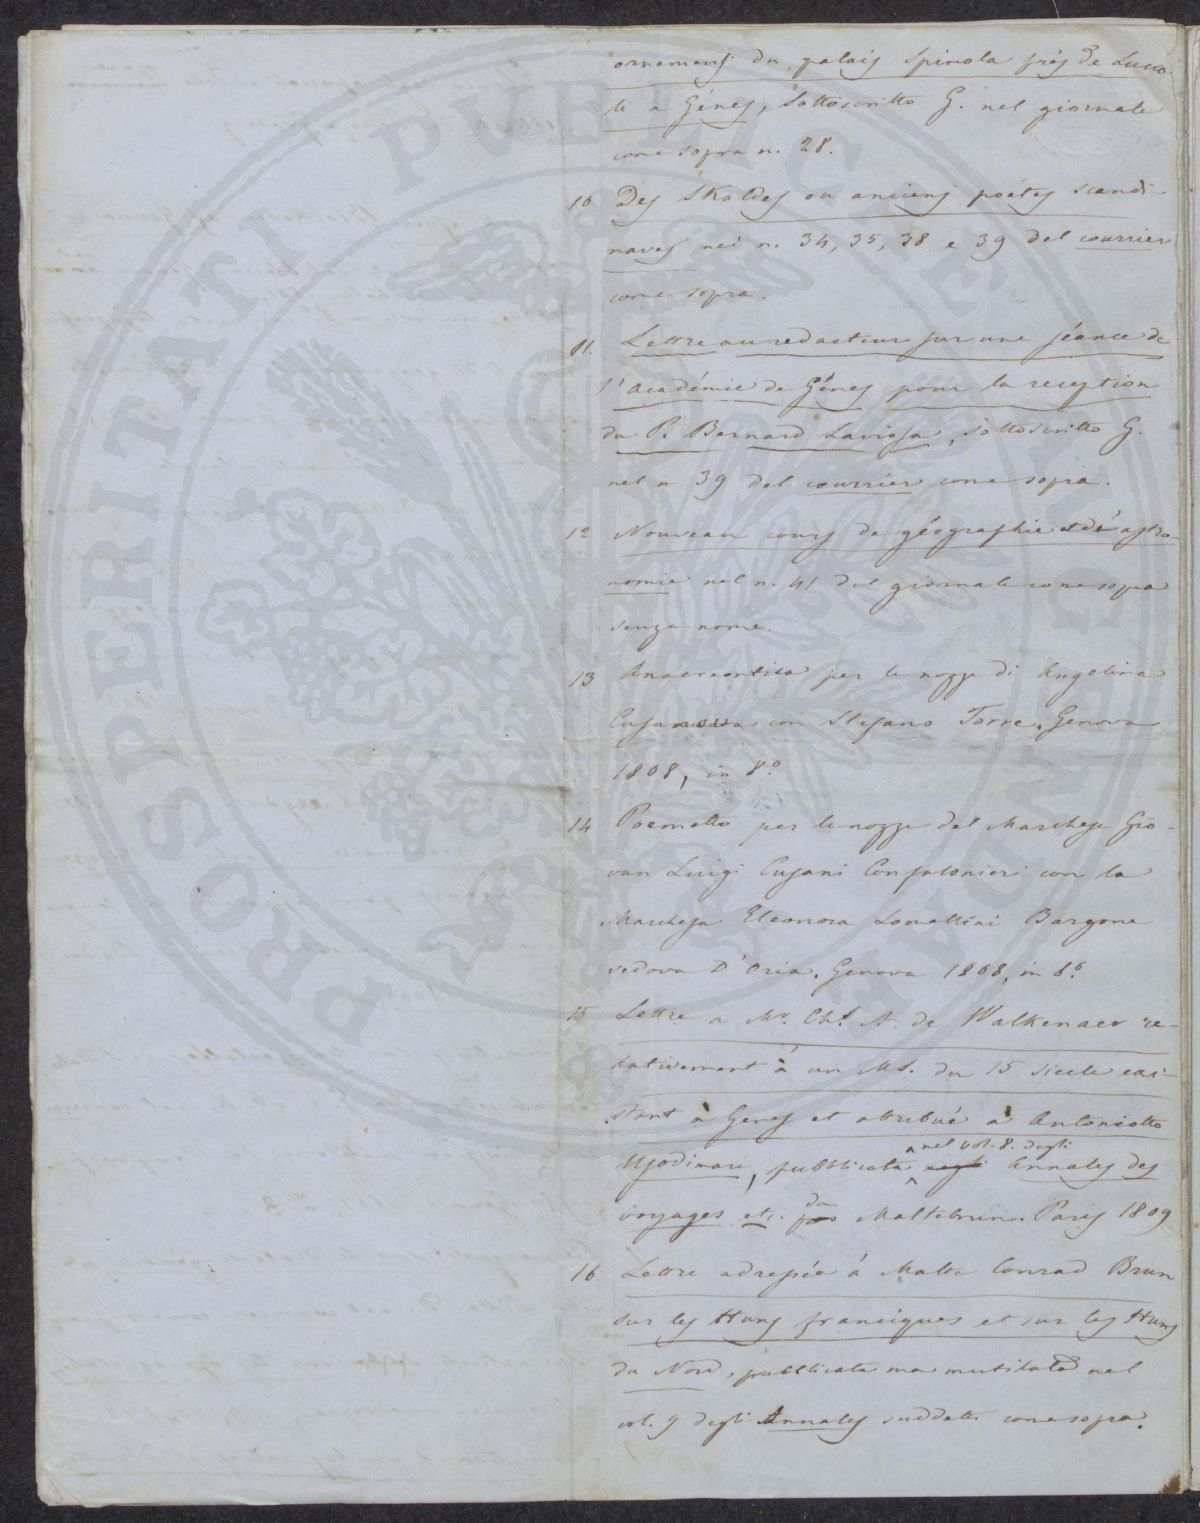 ornemens du palais Spinola près de Lucco-
li a Génes, sottoscritto G. nel giornale
come sopra n. 28.
10 Des Skaldes ou anciens poétes scandi-
naves nei n. 34, 35, 38 e 39 del courrier
come sopra.
11. Lettre au redacteur sur une séance de
l'Académie de Génes pour la reception
du P. Bernard Laviosa, sottoscritto G.
nel n 39 del courrier come sopra.
12 Nouveau cours de géographie et d'astro-
nomie nel n. 41 del giornale come sopra
senza nome.
13 Anacreontica per le nozze di Angelina
Casanova con Stefano Torre. Genova
1808, in 8.º
14 Poemetto per le nozze del Marchese Gio-
van Luigi Cusani Confalonieri con la
Marchesa Eleonora Lomellini Bargone
vedova D'Oria. Genova 1808, in 8.º
15 Lettre a Mr. Ch.s A. de Walkenaer re-
lativement à un MS. du 15 siecle exi-
stant à Genes et attribué à Antoniotto
Usodimare, pubblicata nel vol. 8. degli Annales des
voyages etc. da Maltebrun. Paris 1809
16. Lettre adressée à Malte Conrad Brun
sur les Huns franciques et sur les Huns
du Nord, pubblicata ma mutilata nel
vol. 9 degli Annales suddetti come sopra.
PROSPERITATI PVBLICAE